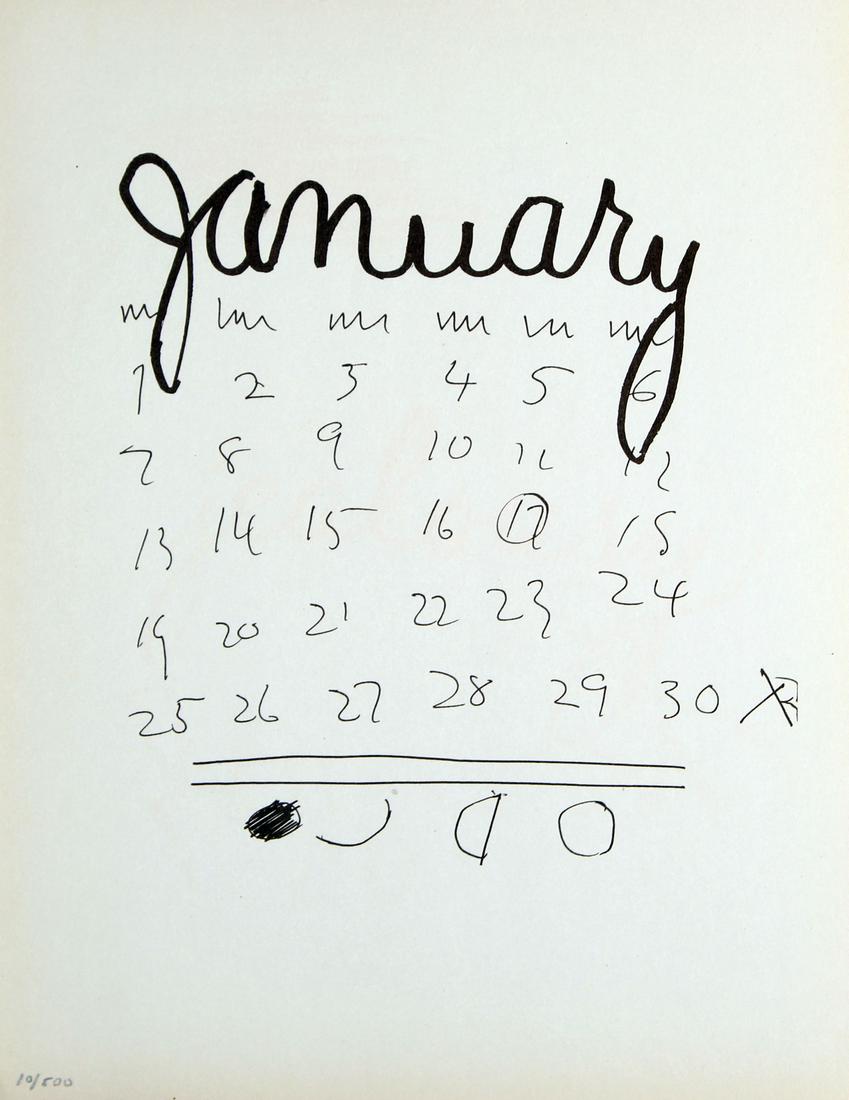 January
1 2 3 4 5 6
7 8 9 10 11 12
13 14 15 16 17 18
19 20 21 22 23 24
25 26 27 28 29 30
10/500